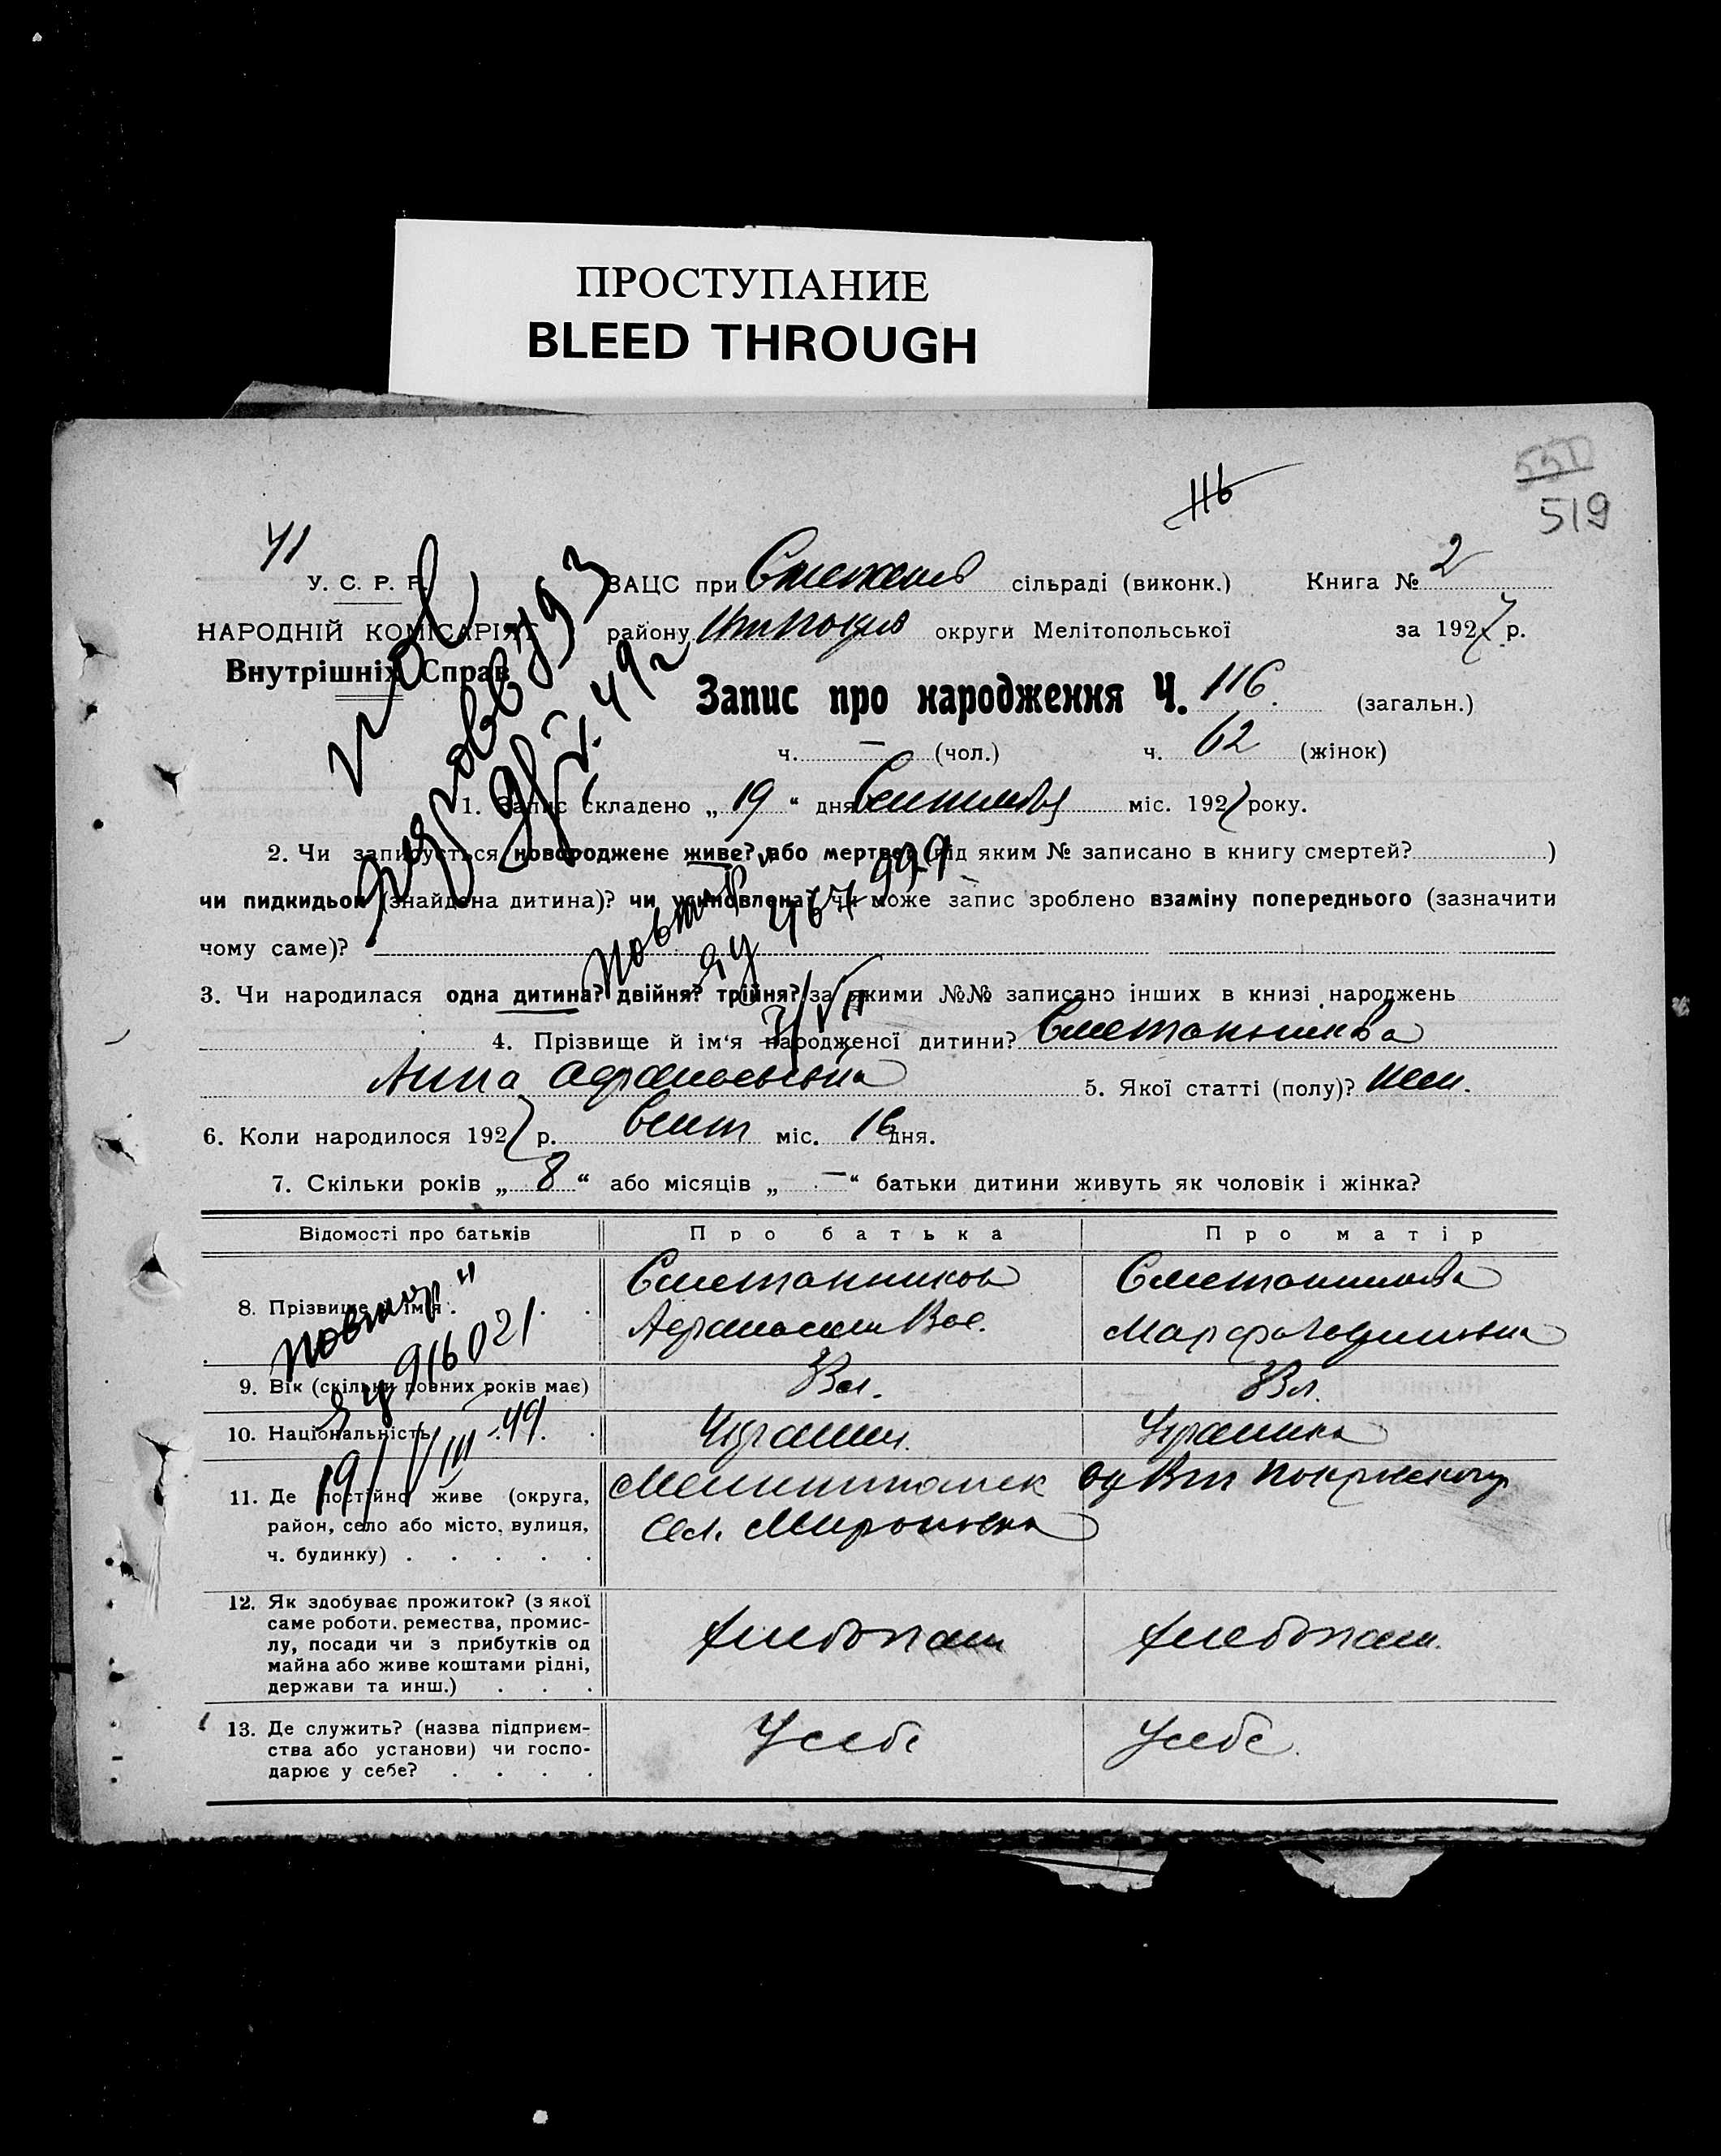 ПРОСТУПАНИЕ
BLEED THROUGH
116
550
519
41
У. С. Р. Р.
ЗАЦС при сільраді (виконк.) Книга № 2
НАРОДНІЙ КОМІСАРІЯТ
району округи Мелітопольської за 1927 р.
Внутрішніх Справ
Запис про народження Ч. 116. (загальн.)
ч. — (чол.) ч. 62 (жінок)
1. Запис складено „ 19 “ дня міс. 1927 року.
2. Чи записується новороджене живе? або мертве? (під яким № записано в книгу смертей? )
чи пидкидьок (знайдена дитина)? чи усиновлена? чи може запис зроблено взаміну попереднього (зазначити
чому саме)?
3. Чи народилася одна дитина? двійня? трійня? за якими №№ записано інших в книзі народжень
4. Прізвище й ім‘я народженої дитини? Сметанникова
Анна Афанасьевна 5. Якої статті (полу)? жен.
6. Коли народилося 1927 р. Сент міс. 16 дня.
7. Скільки років „ 8 “ або місяців „ — “ батьки дитини живуть як чоловік і жінка?
Відомості про батьків Про батька Про матір
8. Прізвище й ім‘я . . . Сметанников Сметанникова
Афанасий Вас. Марфа
Повтор"
916021
9. Вік (скільки повних років має) 33л.
10. Національність . . . Украин. Украинка
19/VIII 49.
11. Де постійно живе (округа,
район, село або місто, вулиця,
ч. будинку) . . . . .
Сел. Мироновка
12. Як здобуває прожиток? (з якої
саме роботи, ремества, промис-
лу, посади чи з прибутків од
майна або живе коштами рідні,
держави та инш.) . . .
Хлебопаш Хлебопаш.
13. Де служить? (назва підприєм-
ства або установи) чи госпо-
дарює у себе? . . . .
У себе У себе.